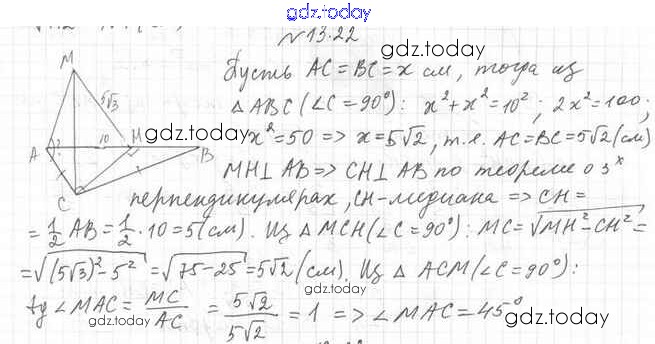 gdz.today
№13.22
gdz.today
Пусть AC=BC=x см, тогда из
△ABC(∠C=90°): x²+x²=10²; 2x²=100;
gdz.today
x²=50 => x=5√2, т.е. AC=BC=5√2(см)
gdz.today
MH⊥AB=>CH⊥AB по теореме о 3ˣ
перпендикулярах, CH-медиана => CH=
=1/2 AB=1/2·10=5(см). Из △MCH(∠C=90°): MC=√MH²-CH²=
=√(5√3)²-5²=√75-25=5√2(см). Из △ACM(∠C=90°):
tg∠MAC=MC/AC=5√2/5√2=1=>∠MAC=45°
gdz.today
gdz.today
M
5√3
A
?
10
H
B
C